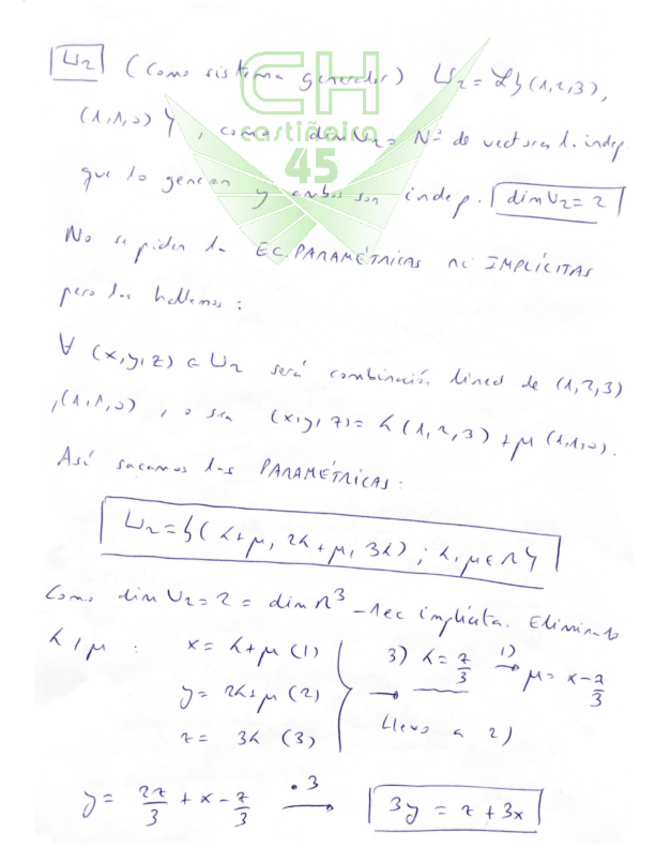 U₂ (Como sistema generador) U₂ = L{(1,2,3),
(1,1,0)}, como dim U₂ = Nº de vectores l. indep.
que lo generan y ambos son indep. dim U₂ = 2
CH
castiñeira
45
No se piden las EC. PARAMÉTRICAS ni IMPLÍCITAS
pero las hallemos :
∀ (x,y,z) ∈ U₂ será combinación lineal de (1,2,3)
,(1,1,0) , o sea (x,y,z) = λ(1,2,3) + μ(1,1,0).
Así sacamos las PARAMÉTRICAS:
U₂ = {(λ+μ, 2λ+μ, 3λ) ; λ,μ ∈ R}
Como dim U₂ = 2 = dim R³ - 1 ec implícita. Eliminando
λ, μ : x = λ+μ (1) 3) λ = z/3 1)→ μ = x - z/3
y = 2λ+μ (2) → Llevo a 2)
z = 3λ (3)
y = 2z/3 + x - z/3 •3→ 3y = z + 3x